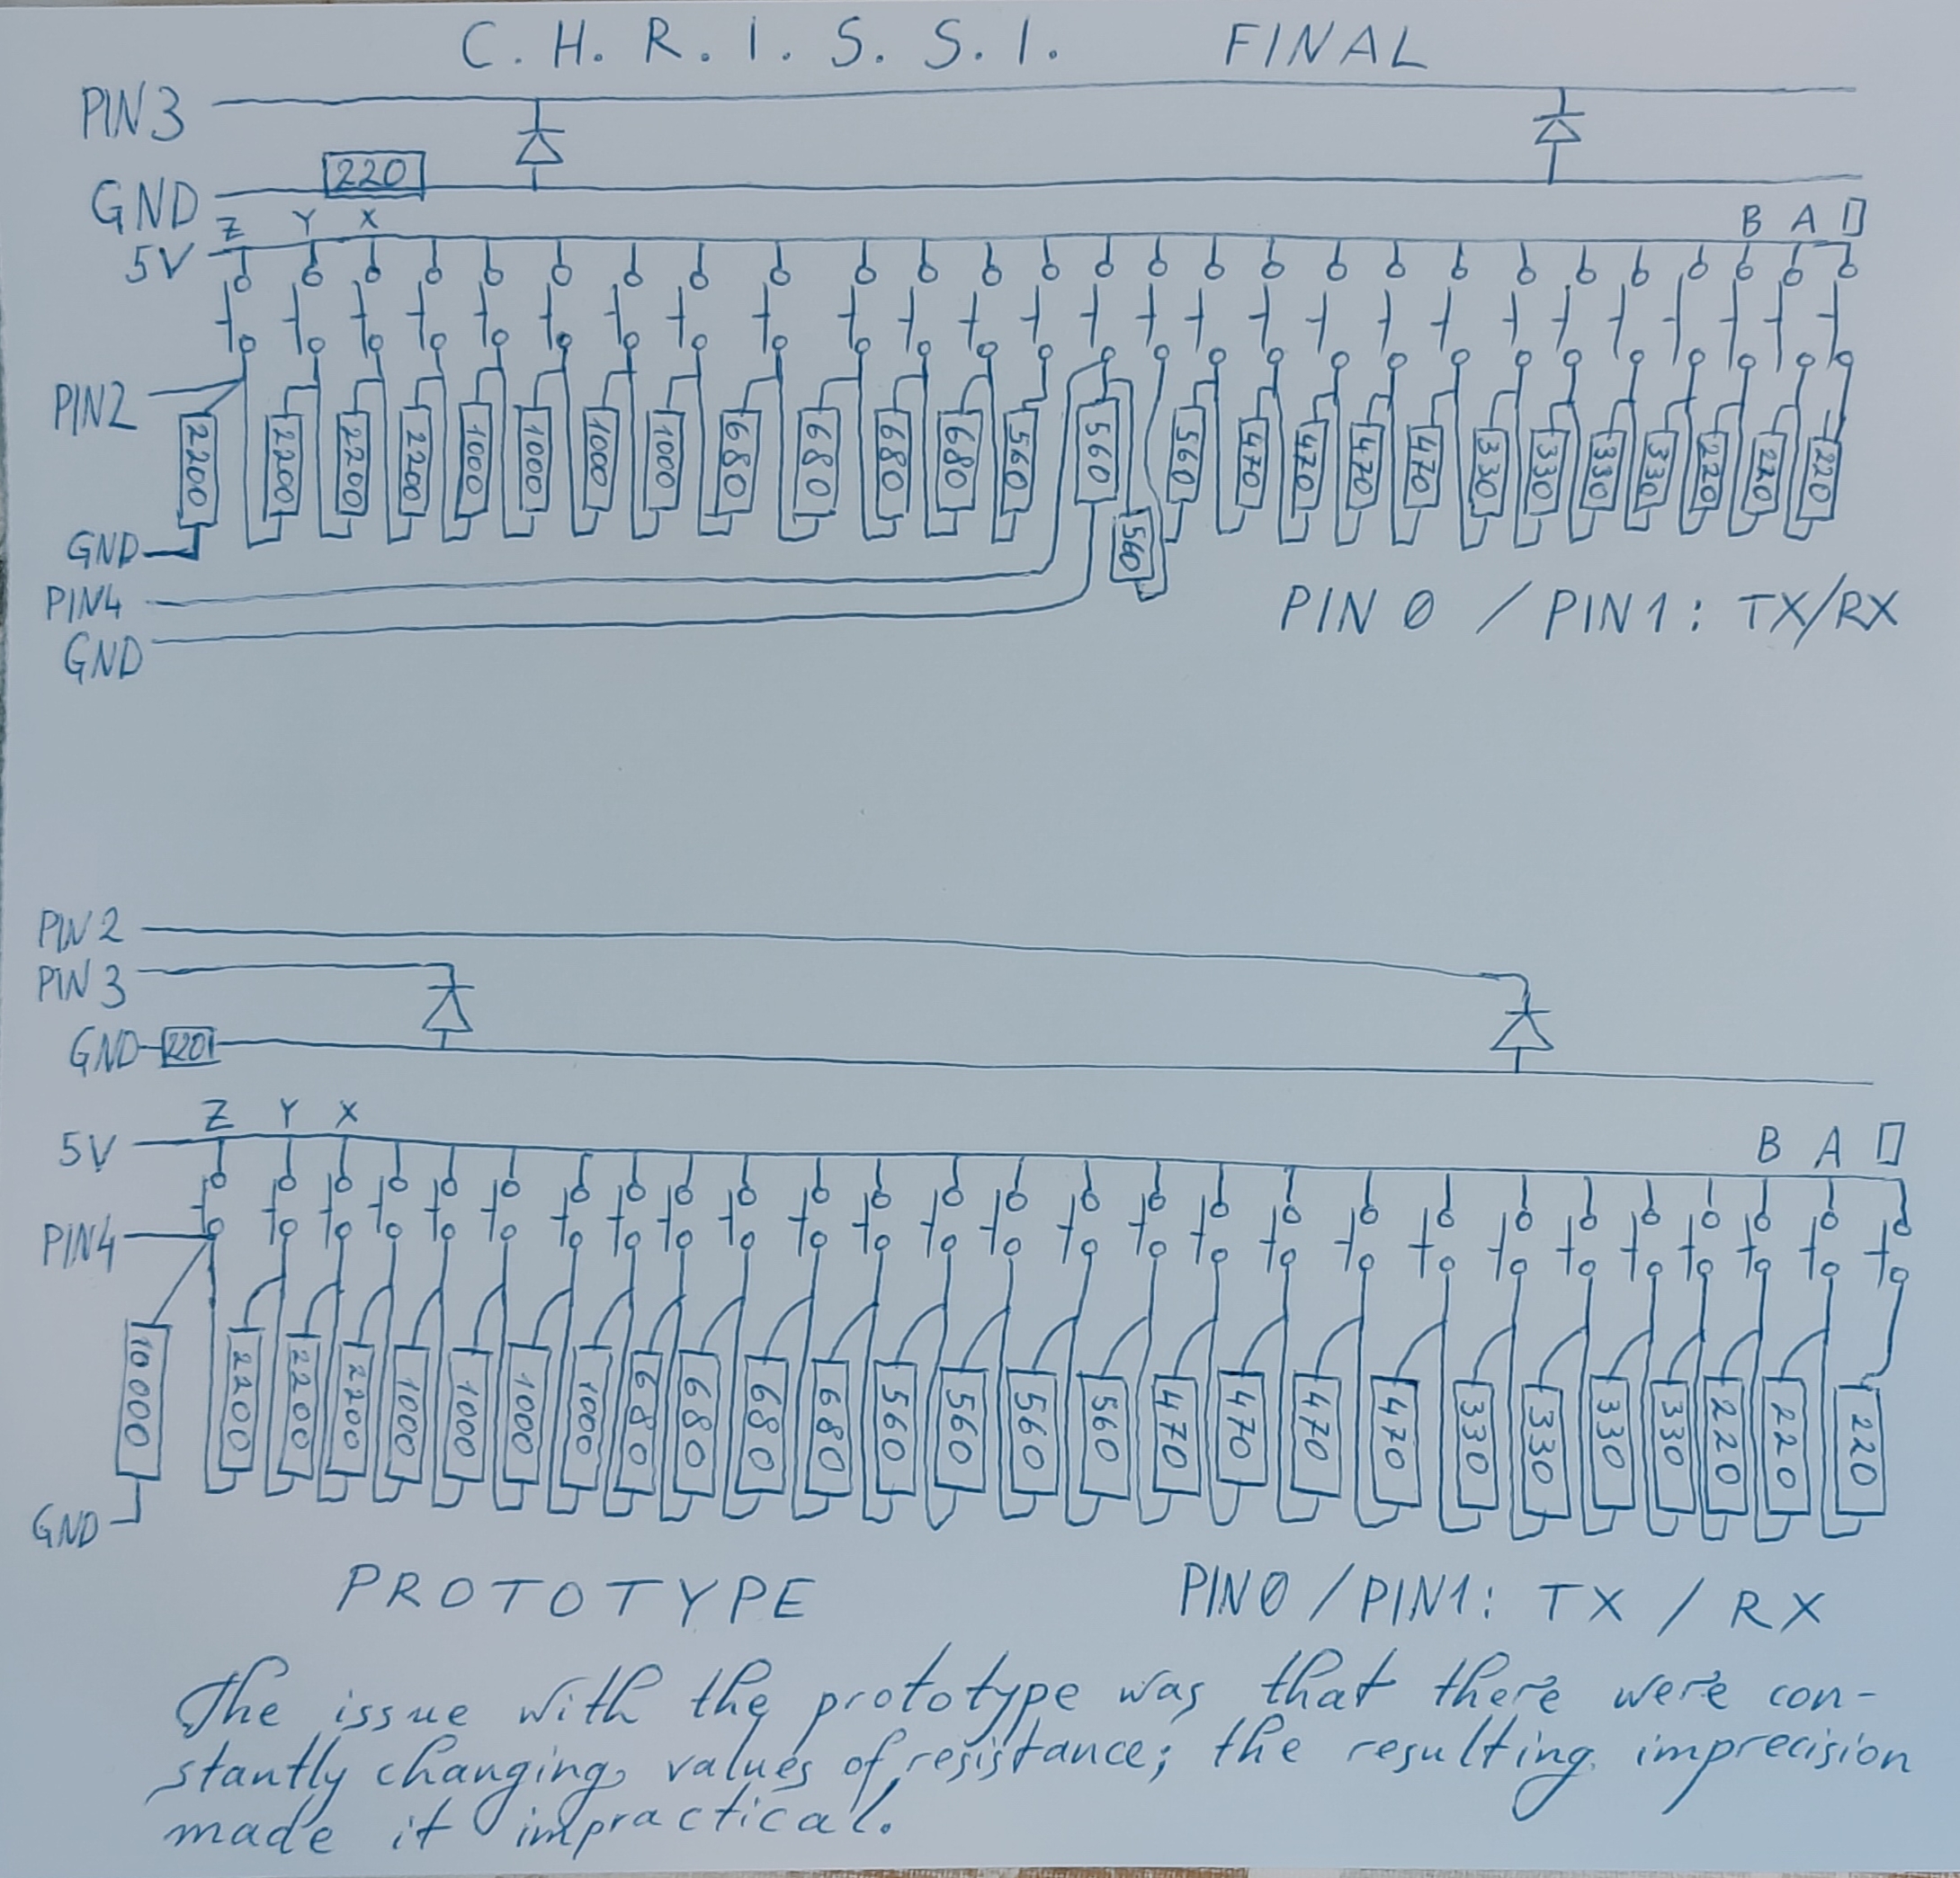 C. H. R. I. S. S. I. FINAL
PIN3
220
GND
Z Y X B A []
5V
PIN2
2200 2200 2200 2200 1000 1000 1000 1000 680 680 680 680 560 560 560 560 470 470 470 470 330 330 330 330 220 220 220
GND
PIN4
GND
PIN 0 / PIN1: TX/RX
PIN 2
PIN 3
GND 220
Z Y X B A []
5V
PIN4
10000 2200 2200 2200 1000 1000 1000 1000 680 680 680 680 560 560 560 560 470 470 470 470 330 330 330 330 220 220 220
GND
PROTOTYPE PIN0 / PIN1: TX / RX
The issue with the prototype was that there were con-
stantly changing values of resistance; the resulting imprecision
made it impractical.